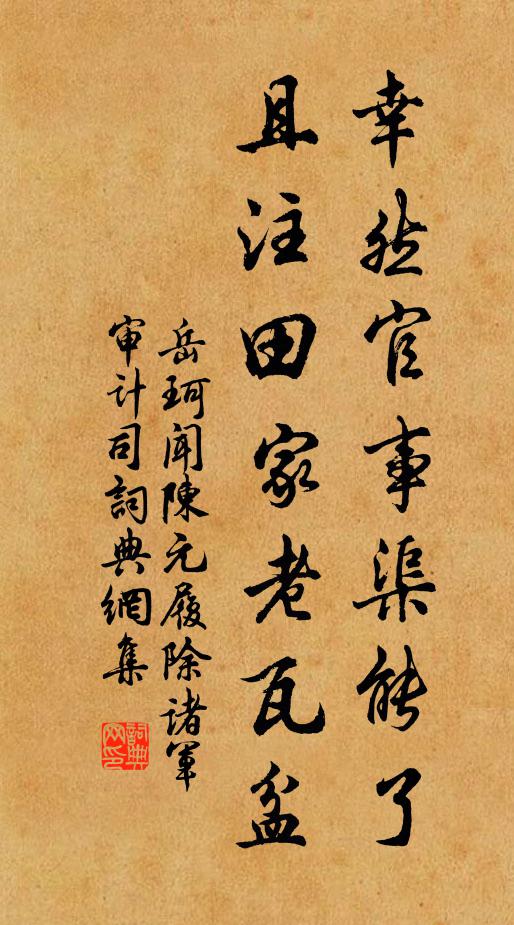 幸然官事渠能了
且注田家老瓦盆
岳珂闻陳元履除诸军
审计司詞典網集
詞典网印